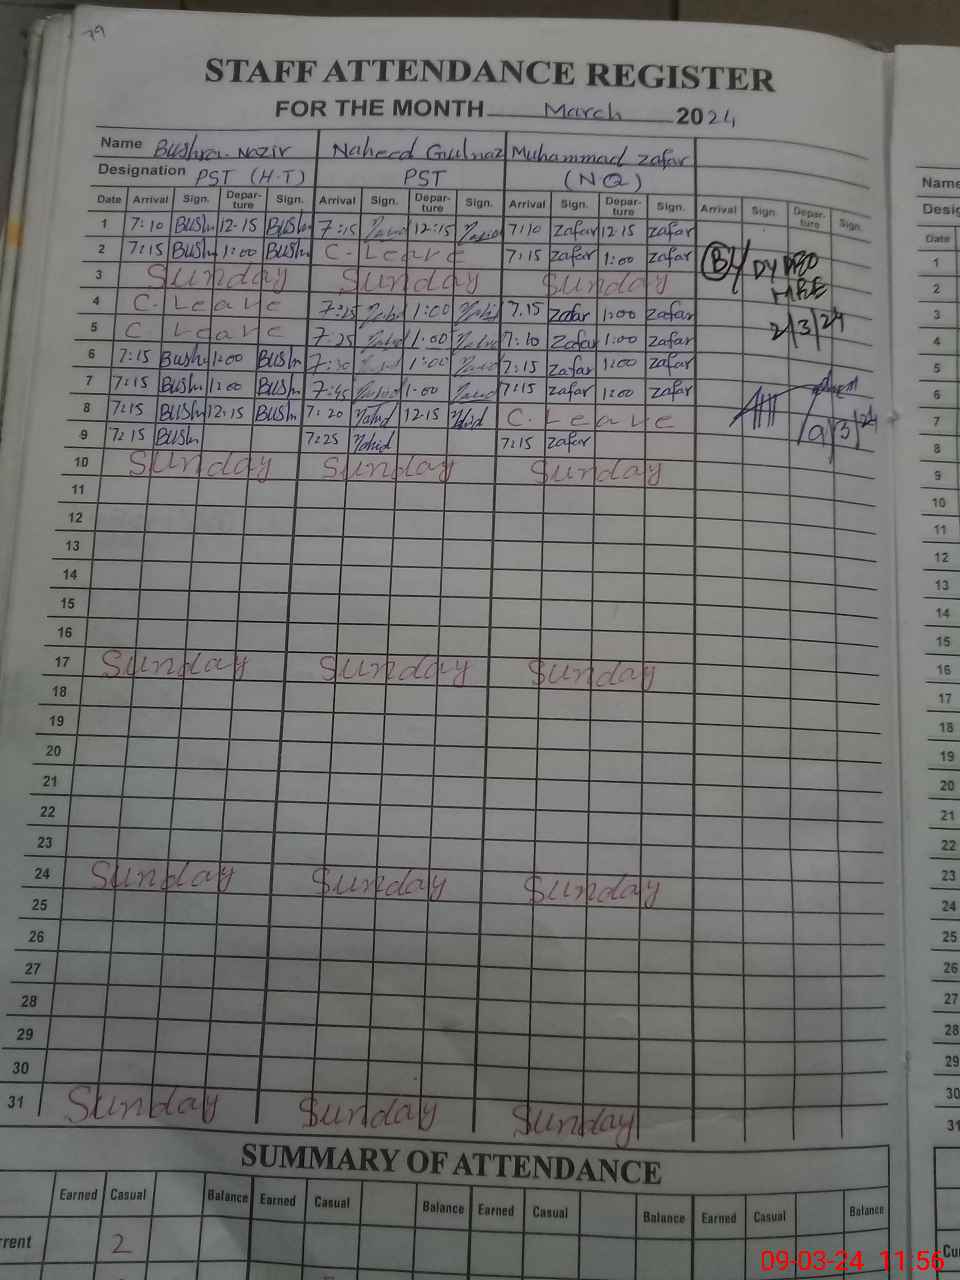 79
STAFF ATTENDANCE REGISTER
FOR THE MONTH March 2024
Name Bushra Nazir Naheed Gulnaz Muhammad Zafar
Designation PST (H.T) PST (NQ)
Date Arrival Sign. Depar-ture Sign. Arrival Sign. Depar-ture Sign. Arrival Sign. Depar-ture Sign. Arrival Sign. Depar-ture Sign.
1 7:10 Bush 12.15 Bush 7:15 Nahid 12:15 Nahid 7:10 Zafar 12.15 Zafar
2 7:15 Bush 1:00 Bush C. Leave 7:15 Zafar 1:00 Zafar
3 Sunday Sunday Sunday
4 C. Leave 7:25 Nahid 1:00 Nahid 7.15 Zafar 1:00 Zafar
5 C. Leave 7:25 Nahid 1:00 Nahid 7:10 Zafar 1:00 Zafar
6 7:15 Bush 1:00 Bush 7:30 1:00 Nahid 7:15 Zafar 1:00 Zafar
7 7:15 Bush 1:00 Bush 7:45 Nahid 1:00 Nahid 7:15 Zafar 1:00 Zafar
8 7:15 Bush 12:15 Bush 7:20 Nahid 12.15 Nahid C. Leave
9 7:15 Bush 7:25 Nahid 7:15 Zafar
10 Sunday Sunday Sunday
11
12
13
14
15
16
17 Sunday Sunday Sunday
18
19
20
21
22
23
24 Sunday Sunday Sunday
25
26
27
28
29
30
31 Sunday Sunday Sunday
2/3/24
9/3/24
SUMMARY OF ATTENDANCE
Earned Casual Balance Earned Casual Balance Earned Casual Balance Earned Casual Balance
rrent 2
Name
Date
1
2
3
4
5
6
7
8
9
10
11
12
13
14
15
16
17
18
19
20
21
22
23
24
25
26
27
28
29
30
31
Cu
09-03-24 11:56